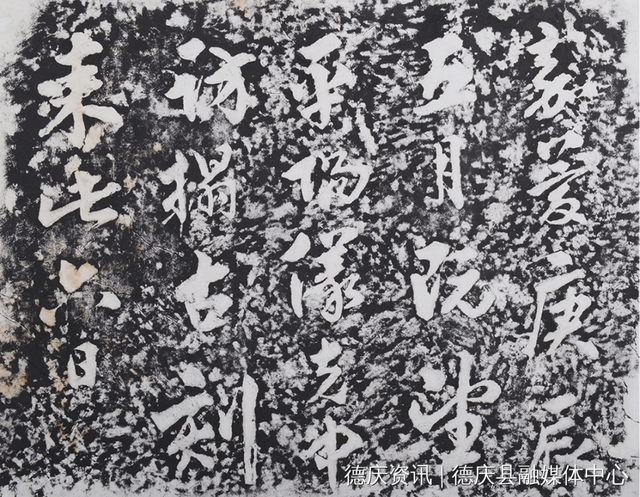 嘉慶庚辰
五月既望
平陽儀克中
訪搨古刻
来此六日
德庆资讯 | 德庆县融媒体中心